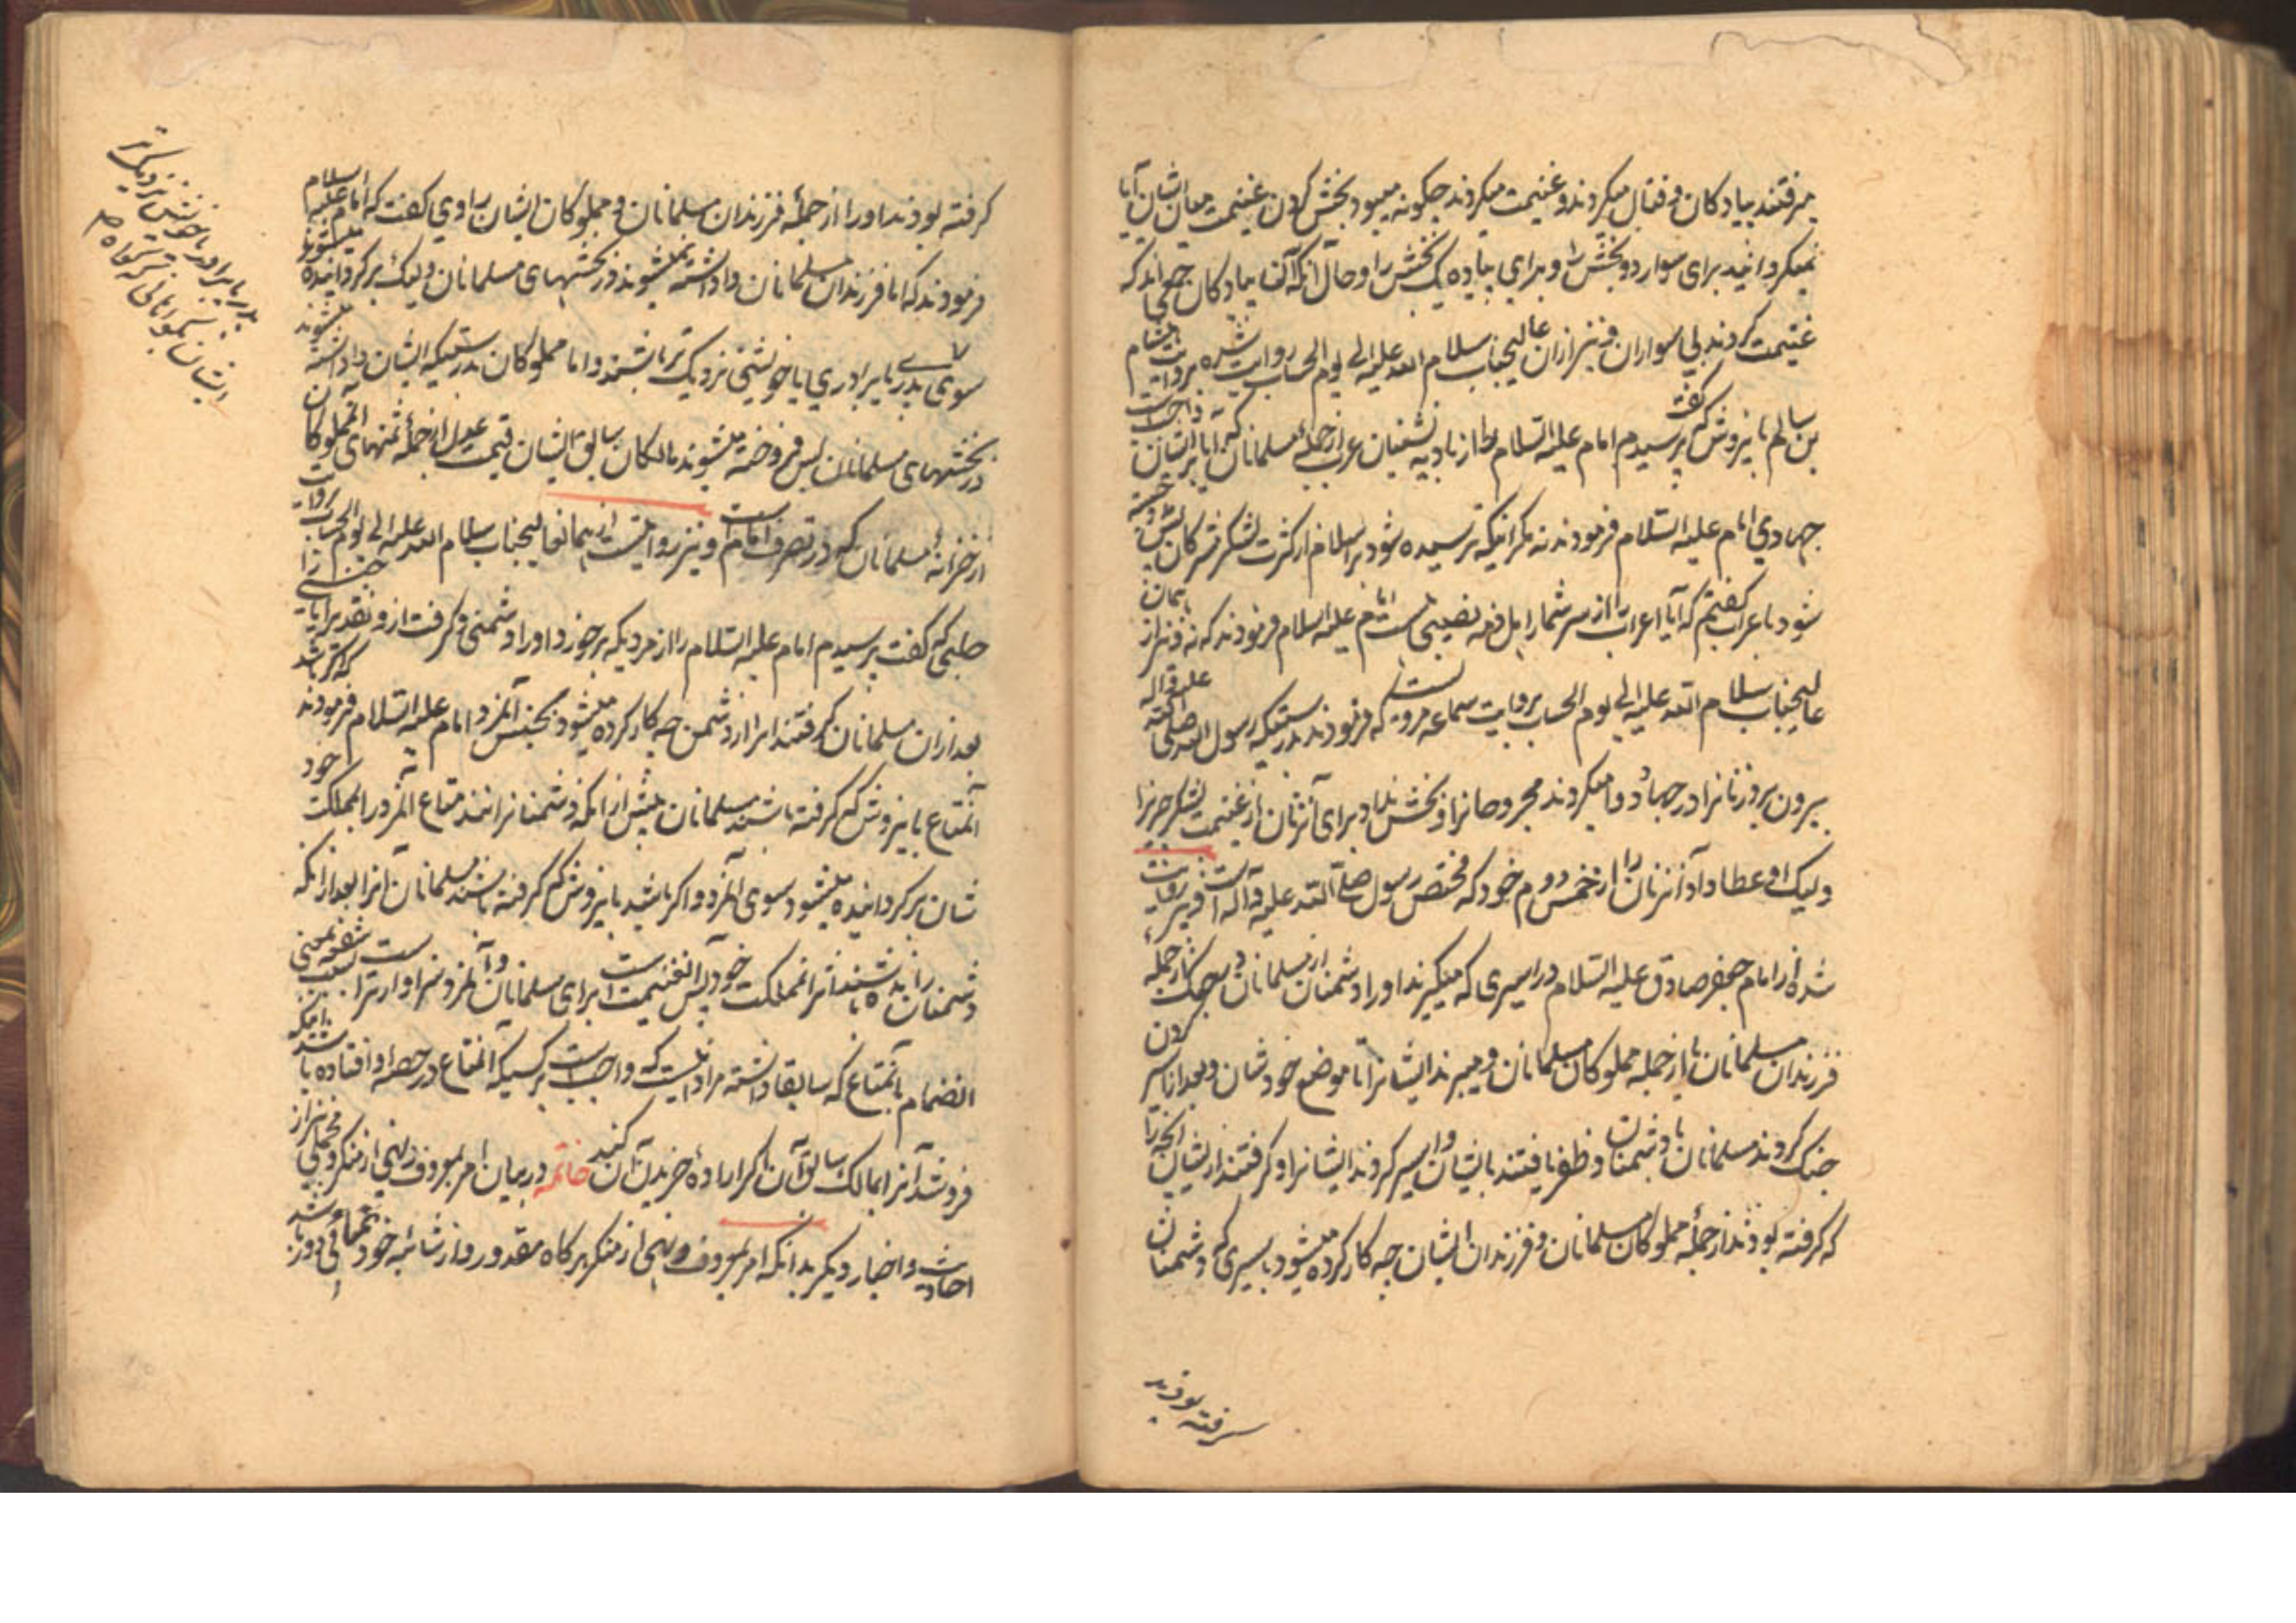 میرفتند پیادگان و قتال میکردند و غنیمت میکردند چکونه میبود بخش کردن غنیمت میان ایشان آیا
نمیگردانید برای سوار دو بخش را و برای پیاده یک بخش را و حال آنکه آن پیادگان جرا اند که
غنیمت کردند بی سواران و نیز از آن عالیجناب سلام الله علیه الی یوم الحساب روایت شده بروایت هشام
بن سالم بانیروش که گفت پرسیدم امام علیه السلام را از بادیه نشینان عرب از جمله مسلمانان که ایا بر ایشان واجبست
جهاد بی امام علیه السلام فرمودند نه مکر اینکه ترسیده شود بر اسلام از کثرت لشکر مشرکان پس
شود باعراب گفتم که آیا اعراب را از سر شمار اهل فیء نصیبی هست امام علیه السلام فرمودند که نه و نیز از
عالیجناب سلام الله علیه الی یوم الحساب بروایت سماعه مرویست که فرمودند بدرستیکه رسول الله صلی الله علیه و آله
بیرون برد زنانرا در جهاد دوا میکردند مجروحانرا و بخش نداد برای آنزنان از غنیمت لشکر چیزیرا
ولیک او عطا داد آنزنان را از خمس دوم خود که مختص رسول صلی الله علیه و آله است و نیز روایت
شده از امام جعفر صادق علیه السلام در اسیری که میگیرند او را دشمنان از مسلمانان در جنک از جمله
فرزندان مسلمانان یا از جمله مملوکان مسلمانان و میبرند ایشانرا تا موضع خودشان و بعد از اسیر کردن
جنک کردند مسلمانان با دشمنان و ظفر یافتند بایشان و اسیر کردند ایشانرا و کرفتند از ایشان انچه را
که کرفته بودند از جمله مملوکان مسلمانان و فرزندان ایشان چه کار کرده میشود باسیری که دشمنان
کرفته بودند
کرفته بودند او را از جمله فرزندان مسلمانان و مملوکان ایشان راوی گفت که امام علیه السلام
فرمودند که اما فرزندان مسلمانان واداشته نمیشوند در بخشهای مسلمانان ولیک برگردانیده میشوند
سوی پدر یا برادری یا خویشی نزدیک تر باشند و اما مملوکان بدرستیکه ایشان واداشته میشوند
در بخشهای مسلمانان پس فروخته میشوند مالکان سابق ایشان قیمت عدل از جمله ثمنهای آنمملوکان
از خزانه مسلمانان که در تصرف امام است و نیز روایتست از همانعالیجناب سلام الله علیه الی یوم الحساب بروایت
حلبی که گفت پرسیدم امام علیه السلام را از مردیکه برخورد او را دشمنی و گرفت ازو نقد یرا یا جنسی را
بعد از آن مسلمانان گرفتند انرا از دشمن چه کار کرده میشود بجنس آنمرد امام علیه السلام فرمودند که اگر باشد
آنمتاع بانیروش که گرفته باشند مسلمانان پیش از آنکه دشمنانرا نند متاع آنمرد را بمملکت خود
شان برگردانیده میشود سوی آنمرد و اگر باشد بانیروش که گرفته باشند مسلمانان آنرا بعد از آنکه
دشمنان رانده باشند انرا بمملکت خود پس آن غنیمت است برای مسلمانان و آنمرد سزاوار ترست بشفعه یعنی
انضمام بآنمتاع که سابقا داشته مراد اینست که واجبست بر کسیکه آنمتاع در حصه او افتاده باشد اینکه
فروشد آنرا بمالک سابق آن اگر اراده خریدن آن کنند خاتمه در بیان امر بمعروف و نهی از منکر و مجملی نیز از
احادیث و اخبار دیگر بدانکه امر بمعروف و نهی از منکر هرگاه مقدور و از شائبه خودنمائی دور باشد
پدر یا برادر یا خویش نزدیکتر